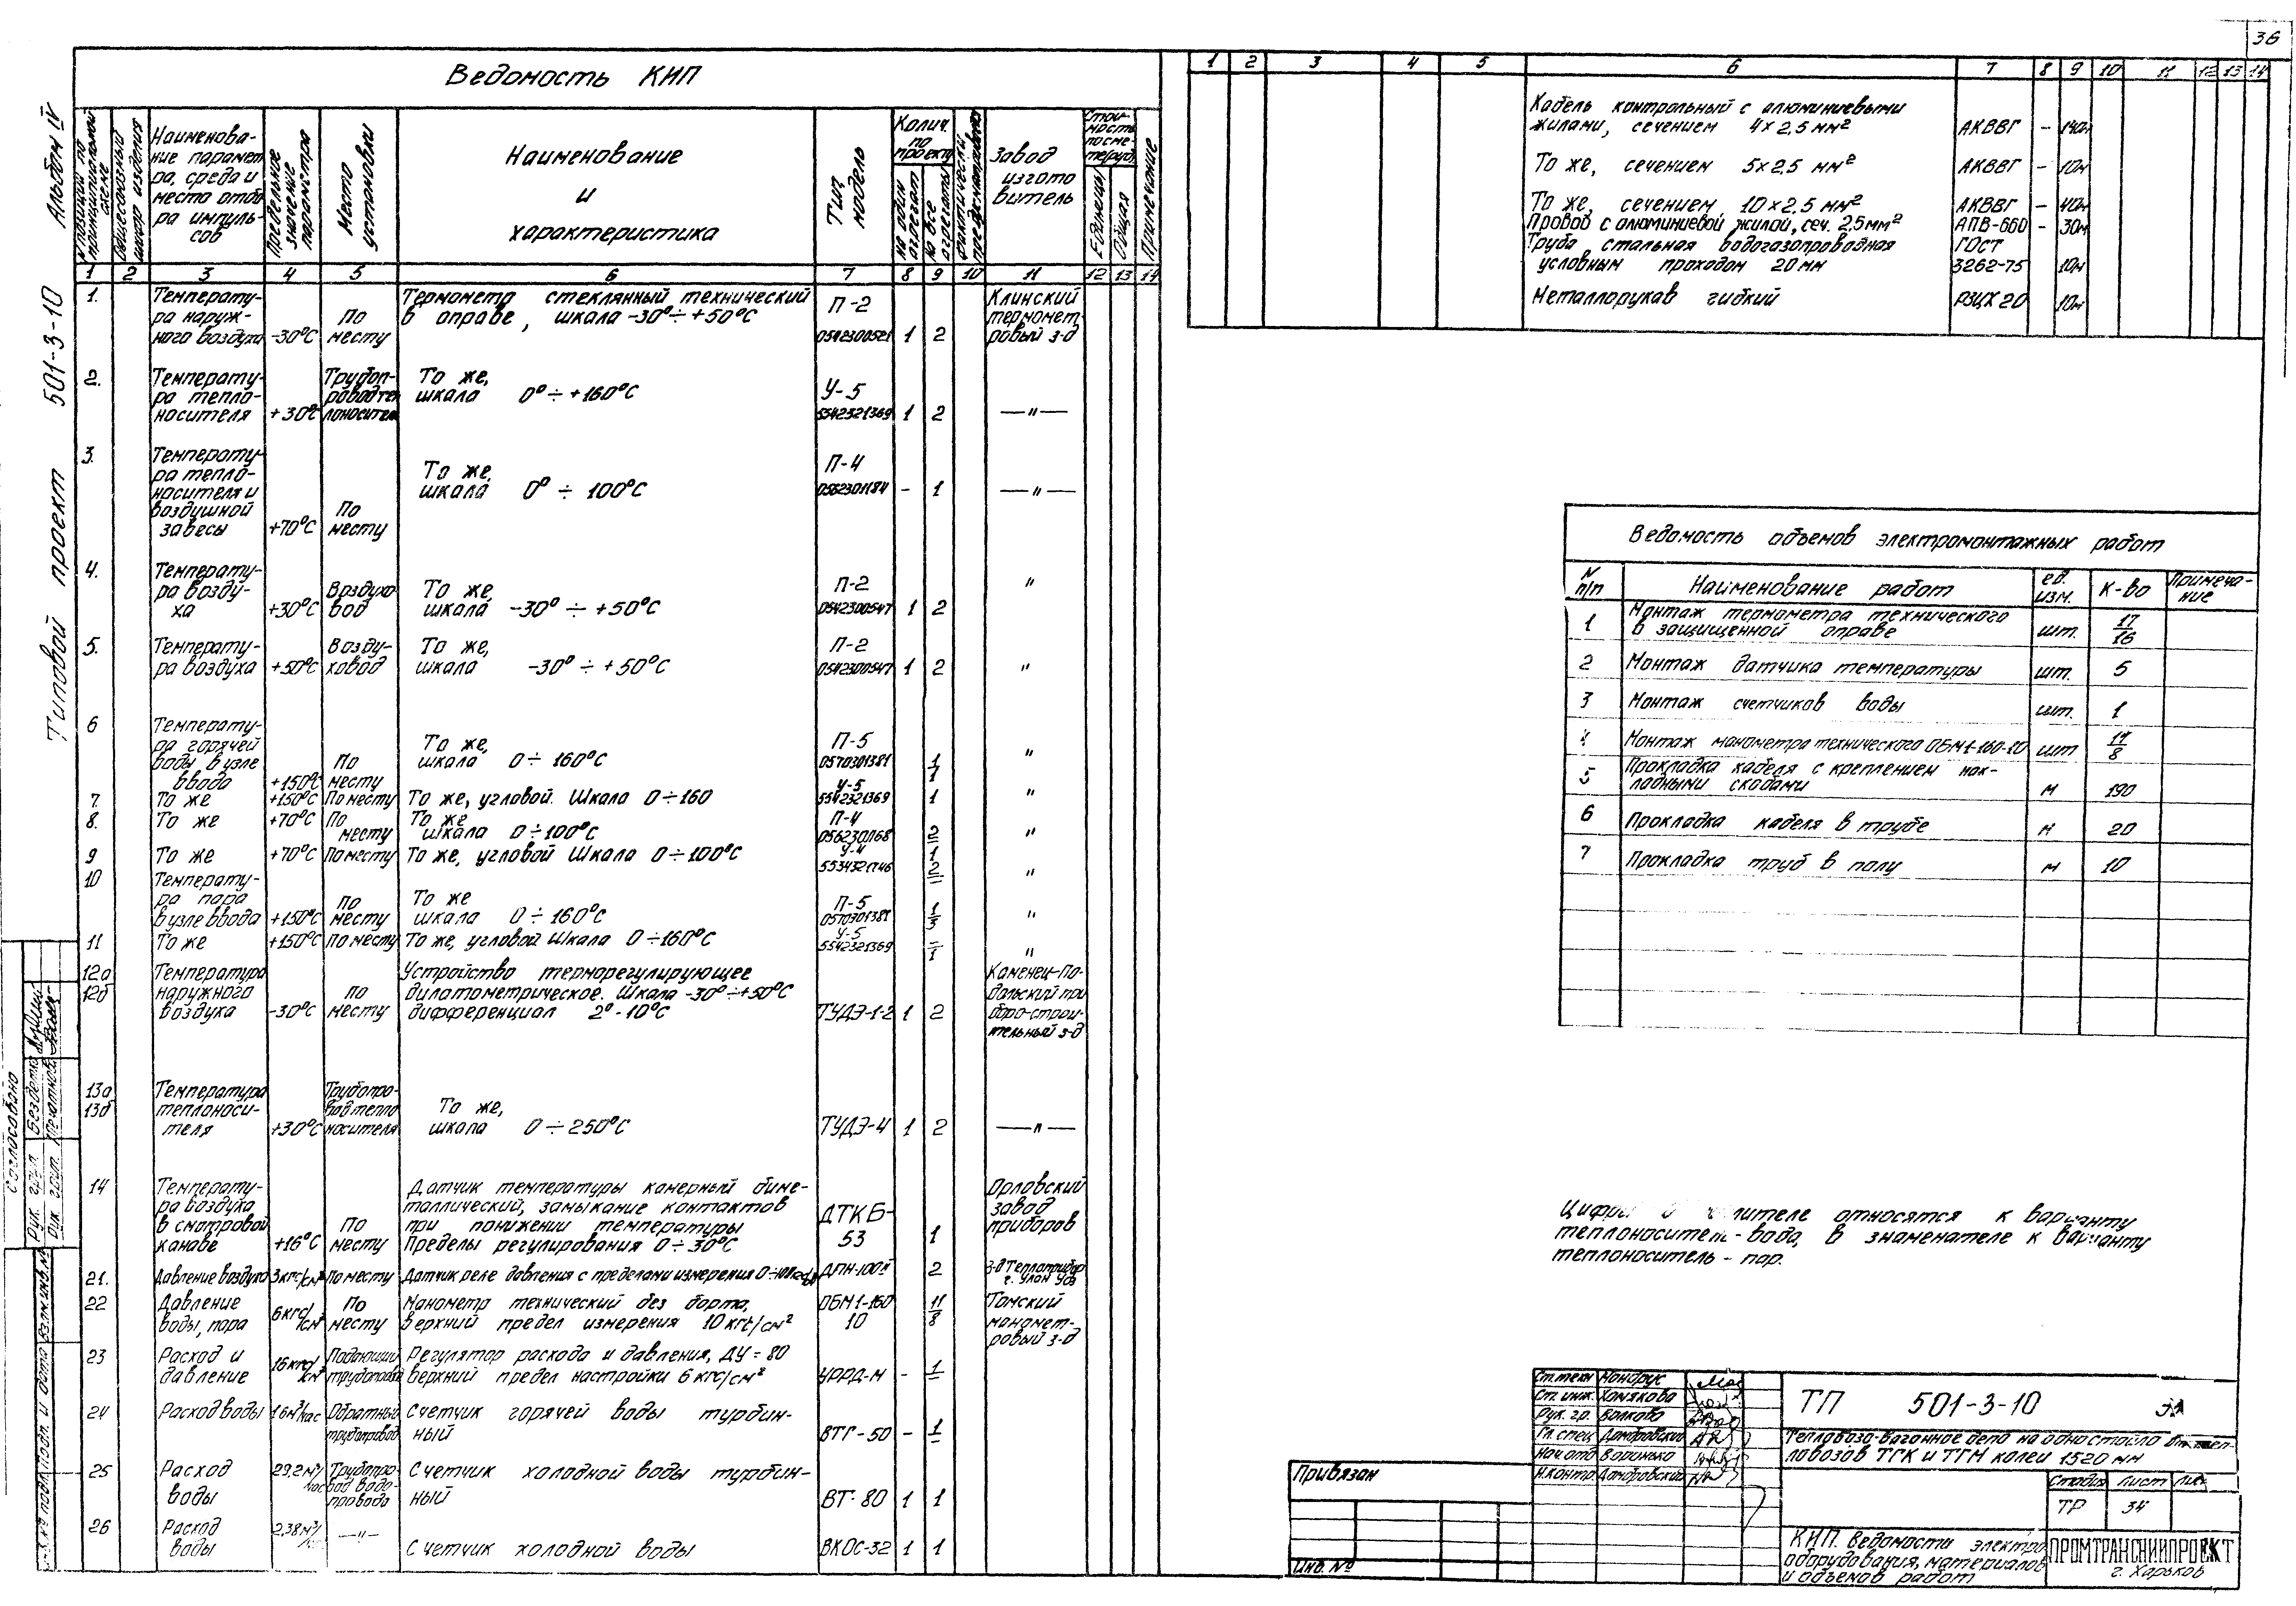 36
Типовой проект 501-3-10 Альбом IV
Ведомость КИП
№ позиции по принципиальной схеме
Общесоюзный шифр изделия
Наименова-
ние парамет
ра, среда и
место отбо
ра импуль-
сов
Предельное значение параметра
Место установки
Наименование
и
характеристика
Тип модель
Колич.
по
проекту
на один агрегат
на все агрегаты
Завод
изгото
витель
Единицы
Общая
Примечание
1 2 3 4 5 6 7 8 9 10 11 12 13 14
1. Температу-
ра наруж-
ного воздуха -30°С По месту Термометр стеклянный технический
в оправе, шкала -30° ÷ +50°С П-2 0542300521 1 2 Клинский
термомет-
ровый з-д
2. Температу-
ра тепло-
носителя +30°С Трубоп-
роводте
лоносителя То же,
шкала 0° ÷ +160°С У-5 5542321369 1 2 —"—
3. Температу-
ра тепло-
носителя и
воздушной
завесы +70°С По месту То же,
шкала 0° ÷ 100°С П-4 0562301184 - 1 —"—
4. Температу-
ра возду-
ха +30°С Воздухо
вод То же,
шкала -30° ÷ +50°С П-2 0542300547 1 2 "
5. Температу-
ра воздуха +50°С Возду-
ховод То же,
шкала -30° ÷ +50°С П-2 0542300547 1 2 "
6 Температу-
ра горячей
воды в узле
ввода +150°С По месту То же,
шкала 0 ÷ 160°С П-5 0570301381 1/1 "
7. То же +150°С По месту То же, угловой. Шкала 0 ÷ 160 У-5 5542321369 1 "
8. То же +70°С По месту То же
шкала 0 ÷ 100°С П-4 2 "
9 То же +70°С По месту То же, угловой Шкала 0 ÷ 100°С У-4 5534321746 1/2
10 Температу-
ра пара
в узле ввода +150°С По месту То же
шкала 0 ÷ 160°С П-5 0570301381 1/3 "
11 То же +150°С По месту То же, угловой Шкала 0 ÷ 160°С У-5 5542321369 -/1 "
12а
12б Температура
наружного
воздуха -30°С По месту Устройство терморегулирующее
дилатометрическое. Шкала -30° ÷ +50°С
дифференциал 2° - 10°С ТУДЭ-1-2 1 2 Каменец-По-
дольский при
боро-строи-
тельный з-д
13а
13б Температура
теплоноси-
теля +30°С Трубопро-
вод тепло
носителя То же,
шкала 0 ÷ 250°С ТУДЭ-4 1 2 —"—
14 Температу-
ра воздуха
в смотровой
канаве +16°С По месту Датчик температуры камерный биме-
таллический, замыкание контактов
при понижении температуры
Пределы регулирования 0 ÷ 30°С ДТКБ-
53 1 Орловский
завод
приборов
21. Давление воздуха 3кгс/см² По месту Датчик реле давления с пределами измерения 2 з-д Теплоприбор
г. Улан Удэ
22 Давление
воды, пара 6кгс/см² По месту Манометр технический без борта,
верхний предел измерения 10 кгс/см² ОБМ1-160
10 11/8 Томский
маномет-
ровый з-д
23 Расход и
давление 16кгс/см² Подающий
трубопровод Регулятор расхода и давления, ДУ = 80
верхний предел настройки 6 кгс/см² УРРД-М - 1/-
24 Расход воды 16м³/час Обратный
трубопровод Счетчик горячей воды турбин-
ный ВТГ-50 - 1/-
25 Расход
воды 29.2м³/час Трубопро-
вод водо-
провода Счетчик холодной воды турбин-
ный ВТ-80 1 1
26 Расход
воды 2,38м³/ —"— Счетчик холодной воды ВКОС-32 1 1
1 2 3 4 5 6 7 8 9 10 11 12 13 14
Кабель контрольный с алюминиевыми
жилами, сечением 4×2,5 мм² АКВВГ - 140м
То же, сечением 5×2,5 мм² АКВВГ - 10м
То же, сечением 10×2,5 мм² АКВВГ - 40м
Провод с алюминиевой жилой, сеч. 2,5мм² АПВ-660 - 30м
Труба стальная водогазопроводная ГОСТ
условным проходом 20 мм 3262-75 10м
Металлорукав гибкий РЗЦХ 20 10м
Ведомость объемов электромонтажных работ
N п/п Наименование работ ед. изм. К-во Примеча-
ние
1 Монтаж термометра технического
в защищенной оправе шт. 17/16
2 Монтаж датчика температуры шт. 5
3 Монтаж счетчиков воды шт. 1
4 Монтаж манометра технического ОБМ1-160-10 шт 11/8
5 Прокладка кабеля с креплением нак-
ладными скобами м 190
6 Прокладка кабеля в трубе м 20
7 Прокладка труб в полу м 10
Цифры в лителе относятся к варианту
теплоноситель - вода, в знаменателе к варианту
теплоноситель - пар.
Согласовано
Рук. груп.
Рук. груп.
Инв.№ подл. Подп. и дата Взам.инв.№
Привязан
Инв. №
Ст.техн
Ст. инж. Хомякова
Рук. гр. Волкова
Гл. спец Домбровский
Нач.отд Воронько
Н.контр. Домбровский
ТП 501-3-10
Тепловозо-вагонное депо на одно стойло для теп-
ловозов ТГК и ТГМ колеи 1520 мм
Стадия Лист
ТР 34
КИП. Ведомости электро
оборудования, материалов
и объемов работ
ПРОМТРАНСНИИПРОЕКТ
г. Харьков